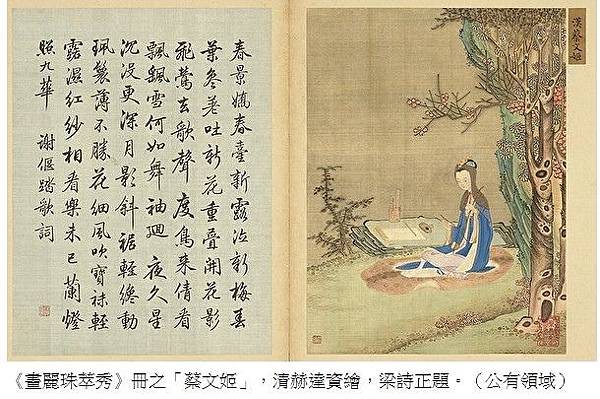 漢蔡文姬
春景嬌春臺新露泣新梅春
葉參差吐新花重疊開花影
飛鶯去歌聲度鳥來倩看
飄颻雪何如舞袖迴夜久星
沉没更深月影斜裾輕纔動
珮鬟薄不勝花細風吹寶袜輕
露濕紅紗相看樂未已蘭燈
照九華
謝偃踏歌詞
《畫麗珠萃秀》冊之「蔡文姬」，清赫達資繪，梁詩正題。（公有領域）